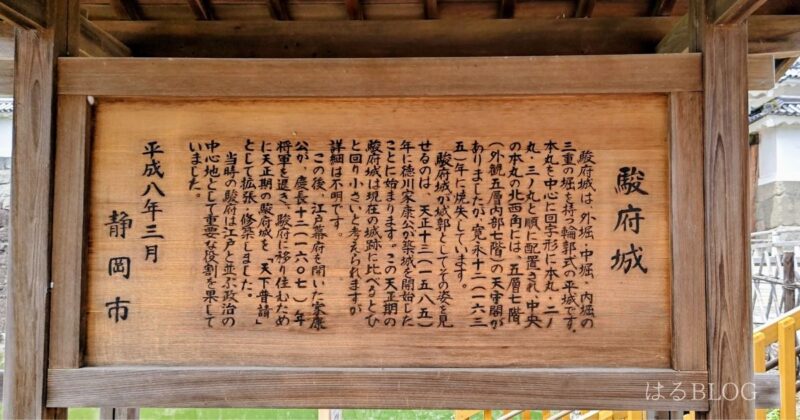 駿府城
駿府城は、外堀・中堀・内堀の
三重の堀を持つ輪郭式の平城です。
本丸を中心に回字形に本丸・二ノ
丸・三ノ丸と順に配置され、中央
の本丸の北西角には、五層七階
(外観五層内部七階)の天守閣が
ありましたが、寛永十二(一六三
五)年に焼失しています。
駿府城が城郭としてその姿を見
せるのは、天正十三(一五八五)
年に徳川家康公が築城を開始した
ことに始まります。この天正期の
駿府城は現在の城跡に比べるとひ
と回り小さいと考えられますが
詳細は不明です。
この後、江戸幕府を開いた家康
公が、慶長十二(一六〇七)年
将軍を退き、駿府に移り住むため
に天正期の駿府城を「天下普請」
として拡張・修築しました。
当時の駿府は江戸と並ぶ政治の
中心地として重要な役割を果して
いました。
平成八年三月
静岡市
はるBLOG